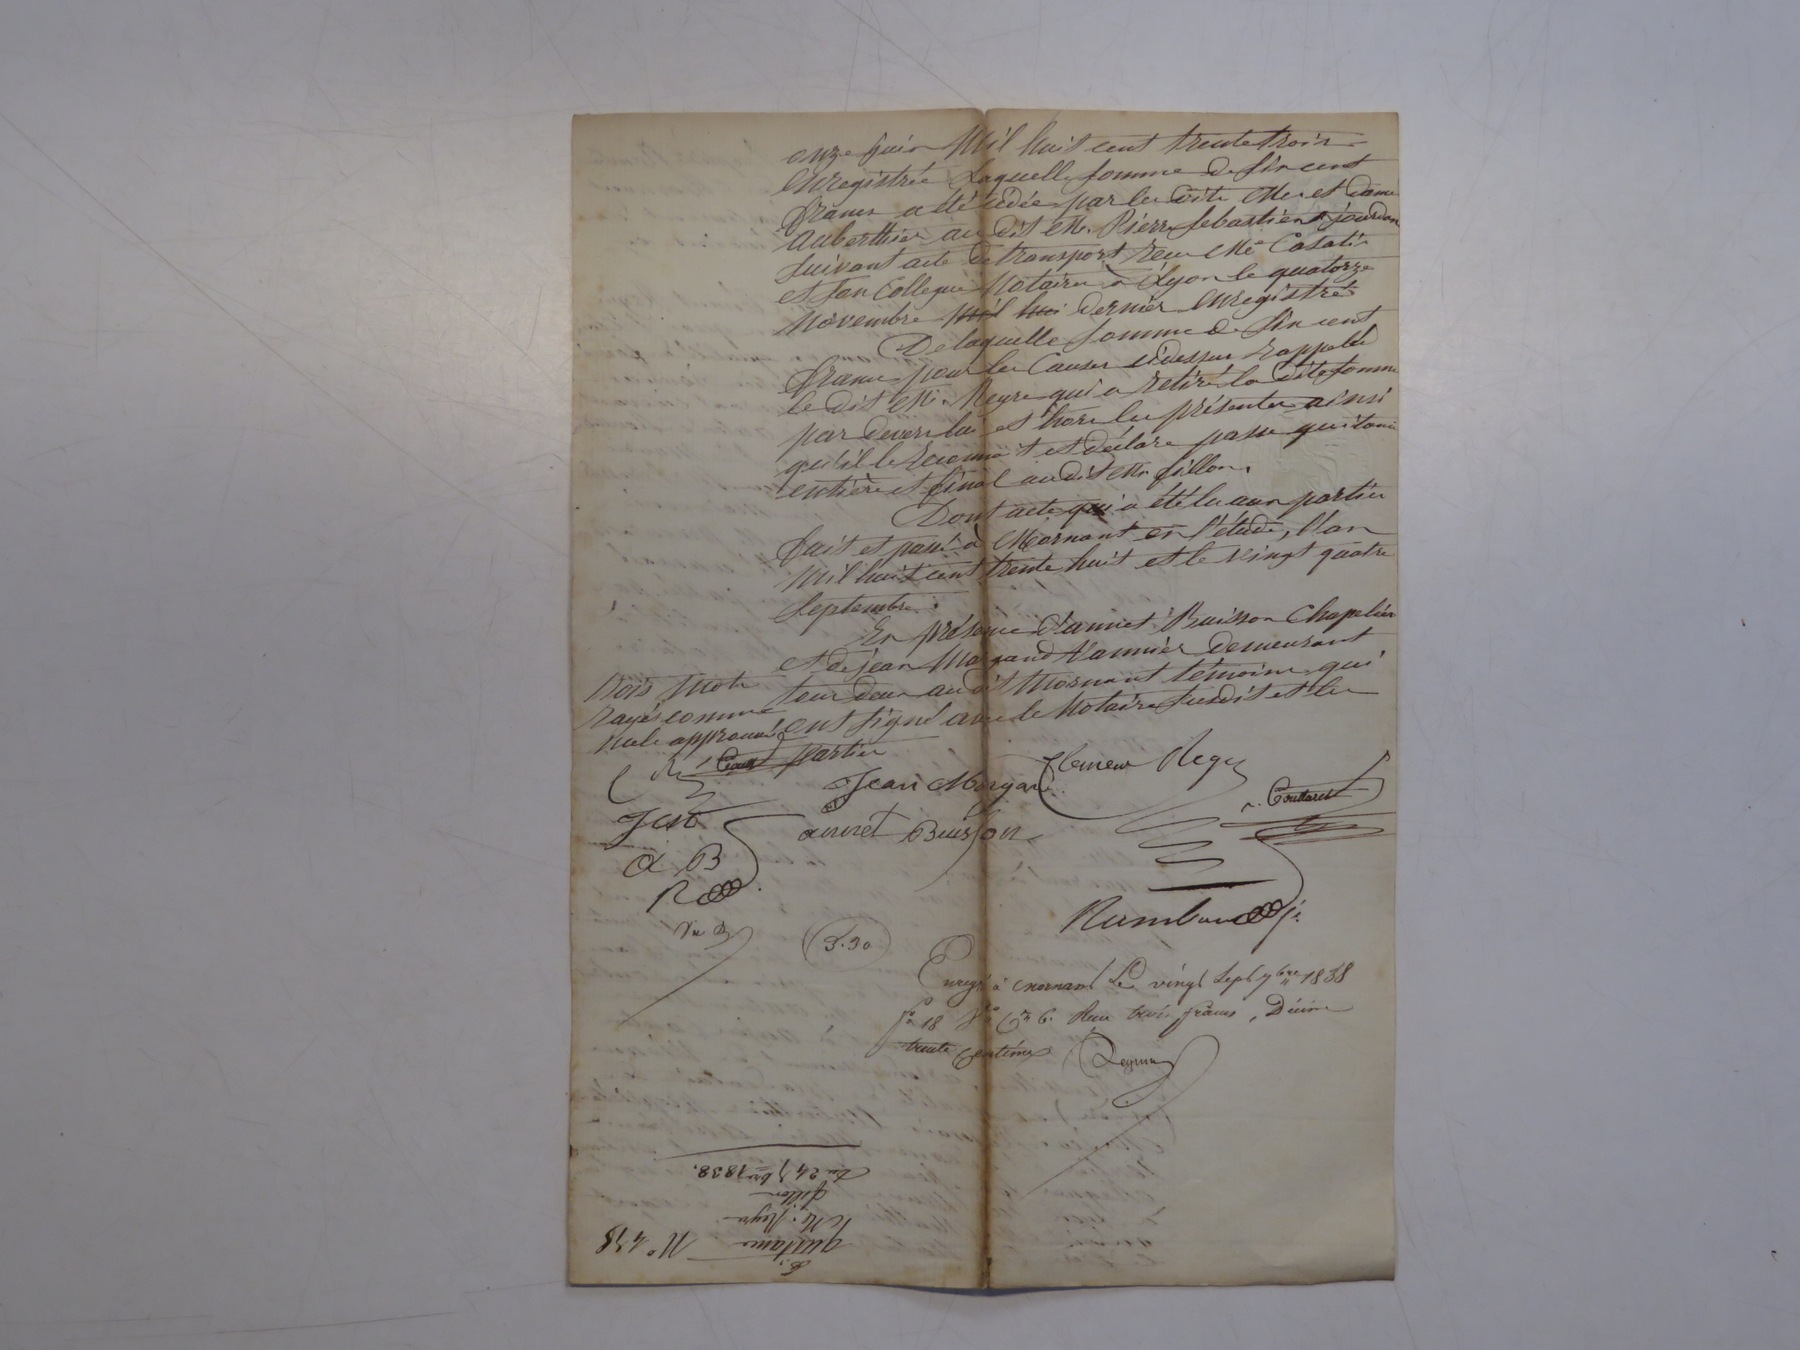 onze juin Mil huit cent trente trois
enregistrée Laquelle somme de Six cent
francs a été cédée par les dits Mr. et dame
Auberthier au dit Mr. Pierre Sebastien jourdan
suivant acte de transport reçu Me Casati
et son Collegue Notaires à Lyon le quatorze
Novembre mil hui dernier enregistré
De laquelle somme de Six cent
francs pour les Causes cidessus rappelés
le dit Mr. Neyre qui a retiré la dite somme
par devers lui et hors les présentes ainsi
qu'il le reconnait et déclare passe quitance
entière et final au dit Mr. fillon.
Dont acte qui a été lu aux parties
fait et passé à Mornant en l'étude, l'an
Mil huit cent trente huit et le vingt quatre
Septembre.
En présence d'annet Buisson Chapelier
et de jean Morgand Vannier demeurant
tous deux au dit Mornant témoins qui
ont signé avec le Notaire susdit et les
parties
trois mots
rayés comme
nuls approuvés
Jean Morgan
annet Buisson
A B
3.30
Enregé à Mornant Le vingt Sept 7bre 1838
fo 18 Vo Ce 6. Reçu trois francs, Décime
trente Centimes
No 438
quittance
Mr. Neyre
fillon
Du 24 7bre 1838.